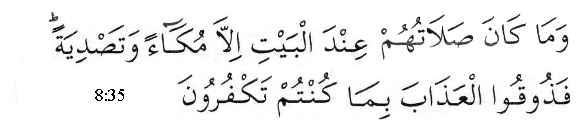 وَمَا كَانَ صَلَاتُهُمْ عِنْدَ الْبَيْتِ اِلَّا مُكَٓاءً وَتَصْدِيَةًۜ
فَذُوقُوا الْعَذَابَ بِمَا كُنْتُمْ تَكْفُرُونَ 8:35